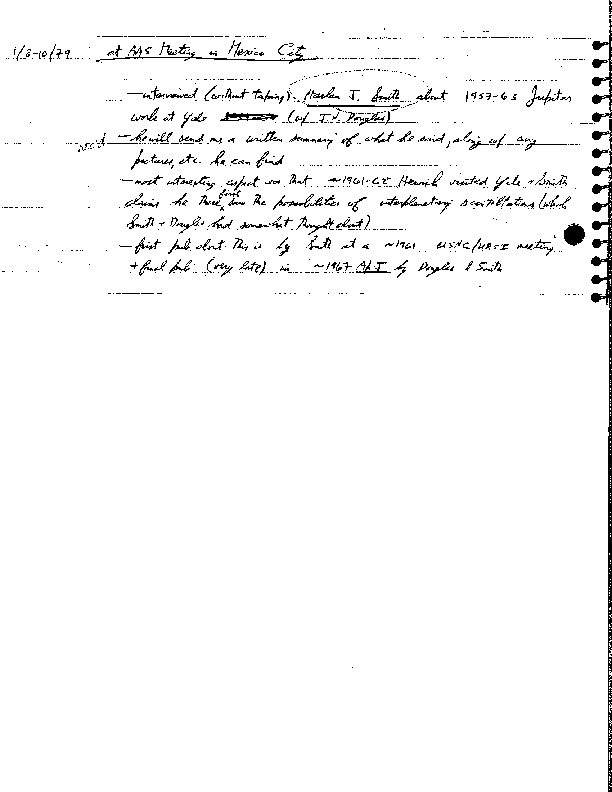 1/8-10/79 at AAS Meeting in Mexico City
— interviewed (without taping) Harlan J. Smith about 1957-63 Jupiter
work at Yale (w/ J.N. Douglas)
rec'd — he will send me a written summary of what he said, along w/ any
pictures, etc. he can find
— most interesting aspect was that ~1961-62 Hewish visited Yale + Smith
claims he there first saw the possibilities of interplanetary scintillations (which
Smith + Douglas had somewhat thought about)
— first pub. about this is by Smith at a ~1961 USNC/URSI meeting
+ final pub. (very late) in ~1967 Ap J by Douglas & Smith